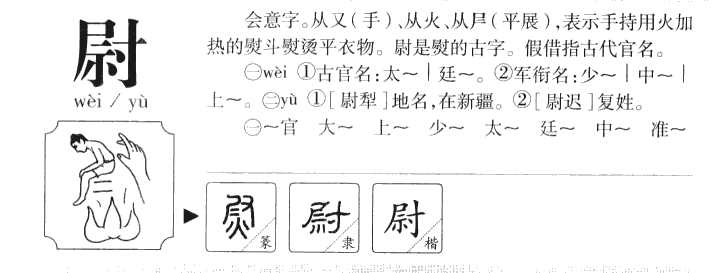 尉
wèi / yù
会意字。从又(手)、从火、从𡰣(平展),表示手持用火加
热的熨斗熨烫平衣物。尉是熨的古字。假借指古代官名。
㊀wèi ①古官名:太～|廷～。②军衔名:少～|中～|
上～。㊁yù ①[尉犁]地名,在新疆。②[尉迟]复姓。
㊀～官 大～ 上～ 少～ 太～ 廷～ 中～ 准～
尉 篆
尉 隶
尉 楷